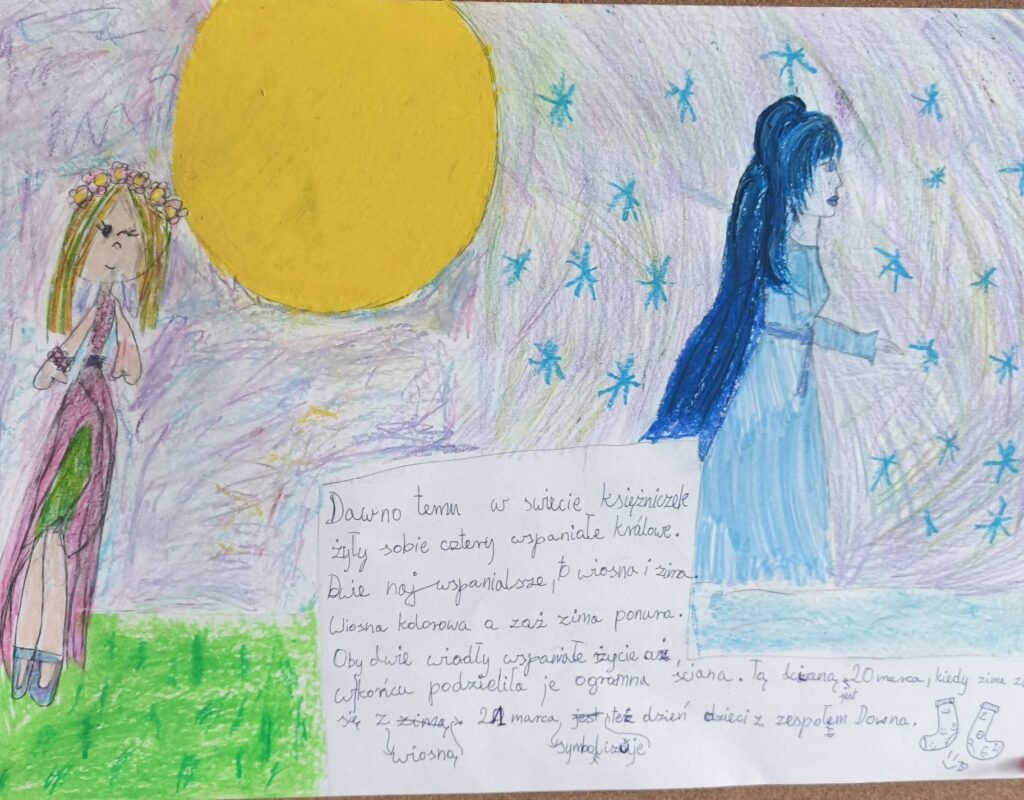 Dawno temu w swiecie księżniczek
żyły sobie cztery wspaniałe królowe.
Dwie naj wspanialsze, to wiosna i zima.
Wiosna kolorowa a zaś zima ponura.
Oby dwie wiodły wspaniałe życie aż,
wkońcu podzieliła je ogromna ściana. Tą ścianą jest 20 marca, kiedy zima
się z zimą. 21 marca jest też dzień dzieci z zespołem Downa.
wiosną symbolizuje